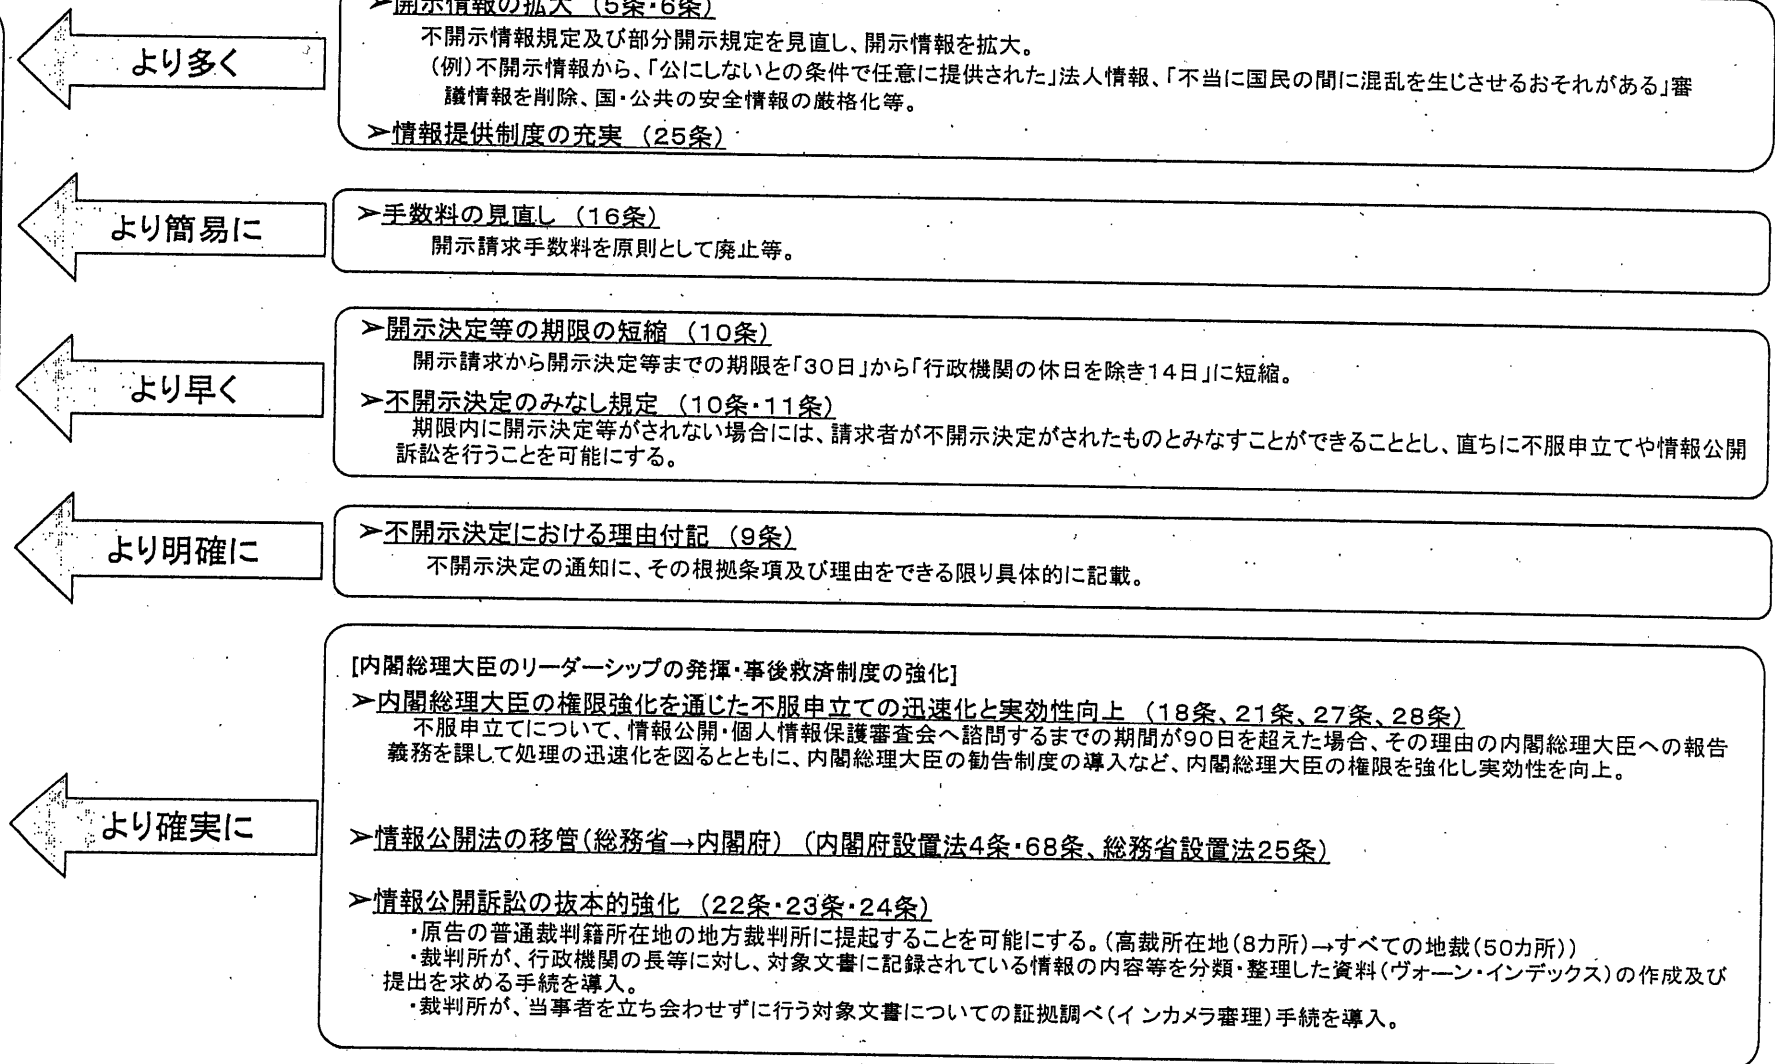 ➢開示情報の拡大 (5条・6条)
より多く
不開示情報規定及び部分開示規定を見直し、開示情報を拡大。
(例)不開示情報から、「公にしないとの条件で任意に提供された」法人情報、「不当に国民の間に混乱を生じさせるおそれがある」審
議情報を削除、国・公共の安全情報の厳格化等。
➢情報提供制度の充実 (25条)
より簡易に
➢手数料の見直し (16条)
開示請求手数料を原則として廃止等。
より早く
➢開示決定等の期限の短縮 (10条)
開示請求から開示決定等までの期限を「30日」から「行政機関の休日を除き14日」に短縮。
➢不開示決定のみなし規定 (10条・11条)
期限内に開示決定等がされない場合には、請求者が不開示決定がされたものとみなすことができることとし、直ちに不服申立てや情報公開
訴訟を行うことを可能にする。
より明確に
➢不開示決定における理由付記 (9条)
不開示決定の通知に、その根拠条項及び理由をできる限り具体的に記載。
より確実に
[内閣総理大臣のリーダーシップの発揮・事後救済制度の強化]
➢内閣総理大臣の権限強化を通じた不服申立ての迅速化と実効性向上 (18条、21条、27条、28条)
不服申立てについて、情報公開・個人情報保護審査会へ諮問するまでの期間が90日を超えた場合、その理由の内閣総理大臣への報告
義務を課して処理の迅速化を図るとともに、内閣総理大臣の勧告制度の導入など、内閣総理大臣の権限を強化し実効性を向上。
➢情報公開法の移管(総務省→内閣府) (内閣府設置法4条・68条、総務省設置法25条)
➢情報公開訴訟の抜本的強化 (22条・23条・24条)
・原告の普通裁判籍所在地の地方裁判所に提起することを可能にする。(高裁所在地(8カ所)→すべての地裁(50カ所))
・裁判所が、行政機関の長等に対し、対象文書に記録されている情報の内容等を分類・整理した資料(ヴォーン・インデックス)の作成及び
提出を求める手続を導入。
・裁判所が、当事者を立ち会わせずに行う対象文書についての証拠調べ(インカメラ審理)手続を導入。